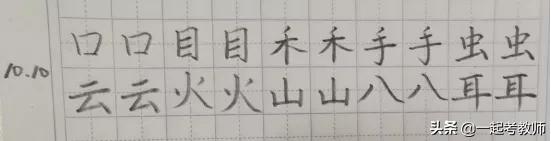 10.10
口口目目禾禾手手虫虫
云云火火山山八八耳耳
头条 @一起考教师